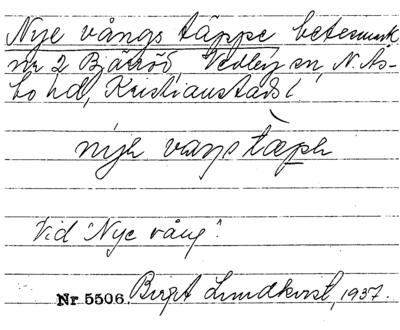 Nye vångs täppe betesmark
nr 2 Bjärröd Vedby sn, N. Ås-
bo hd, Kristianstads l
nyjə vaŋs tæpə
Vid "Nye vång".
Nr 5506. Birgit Lundkvist, 1937.